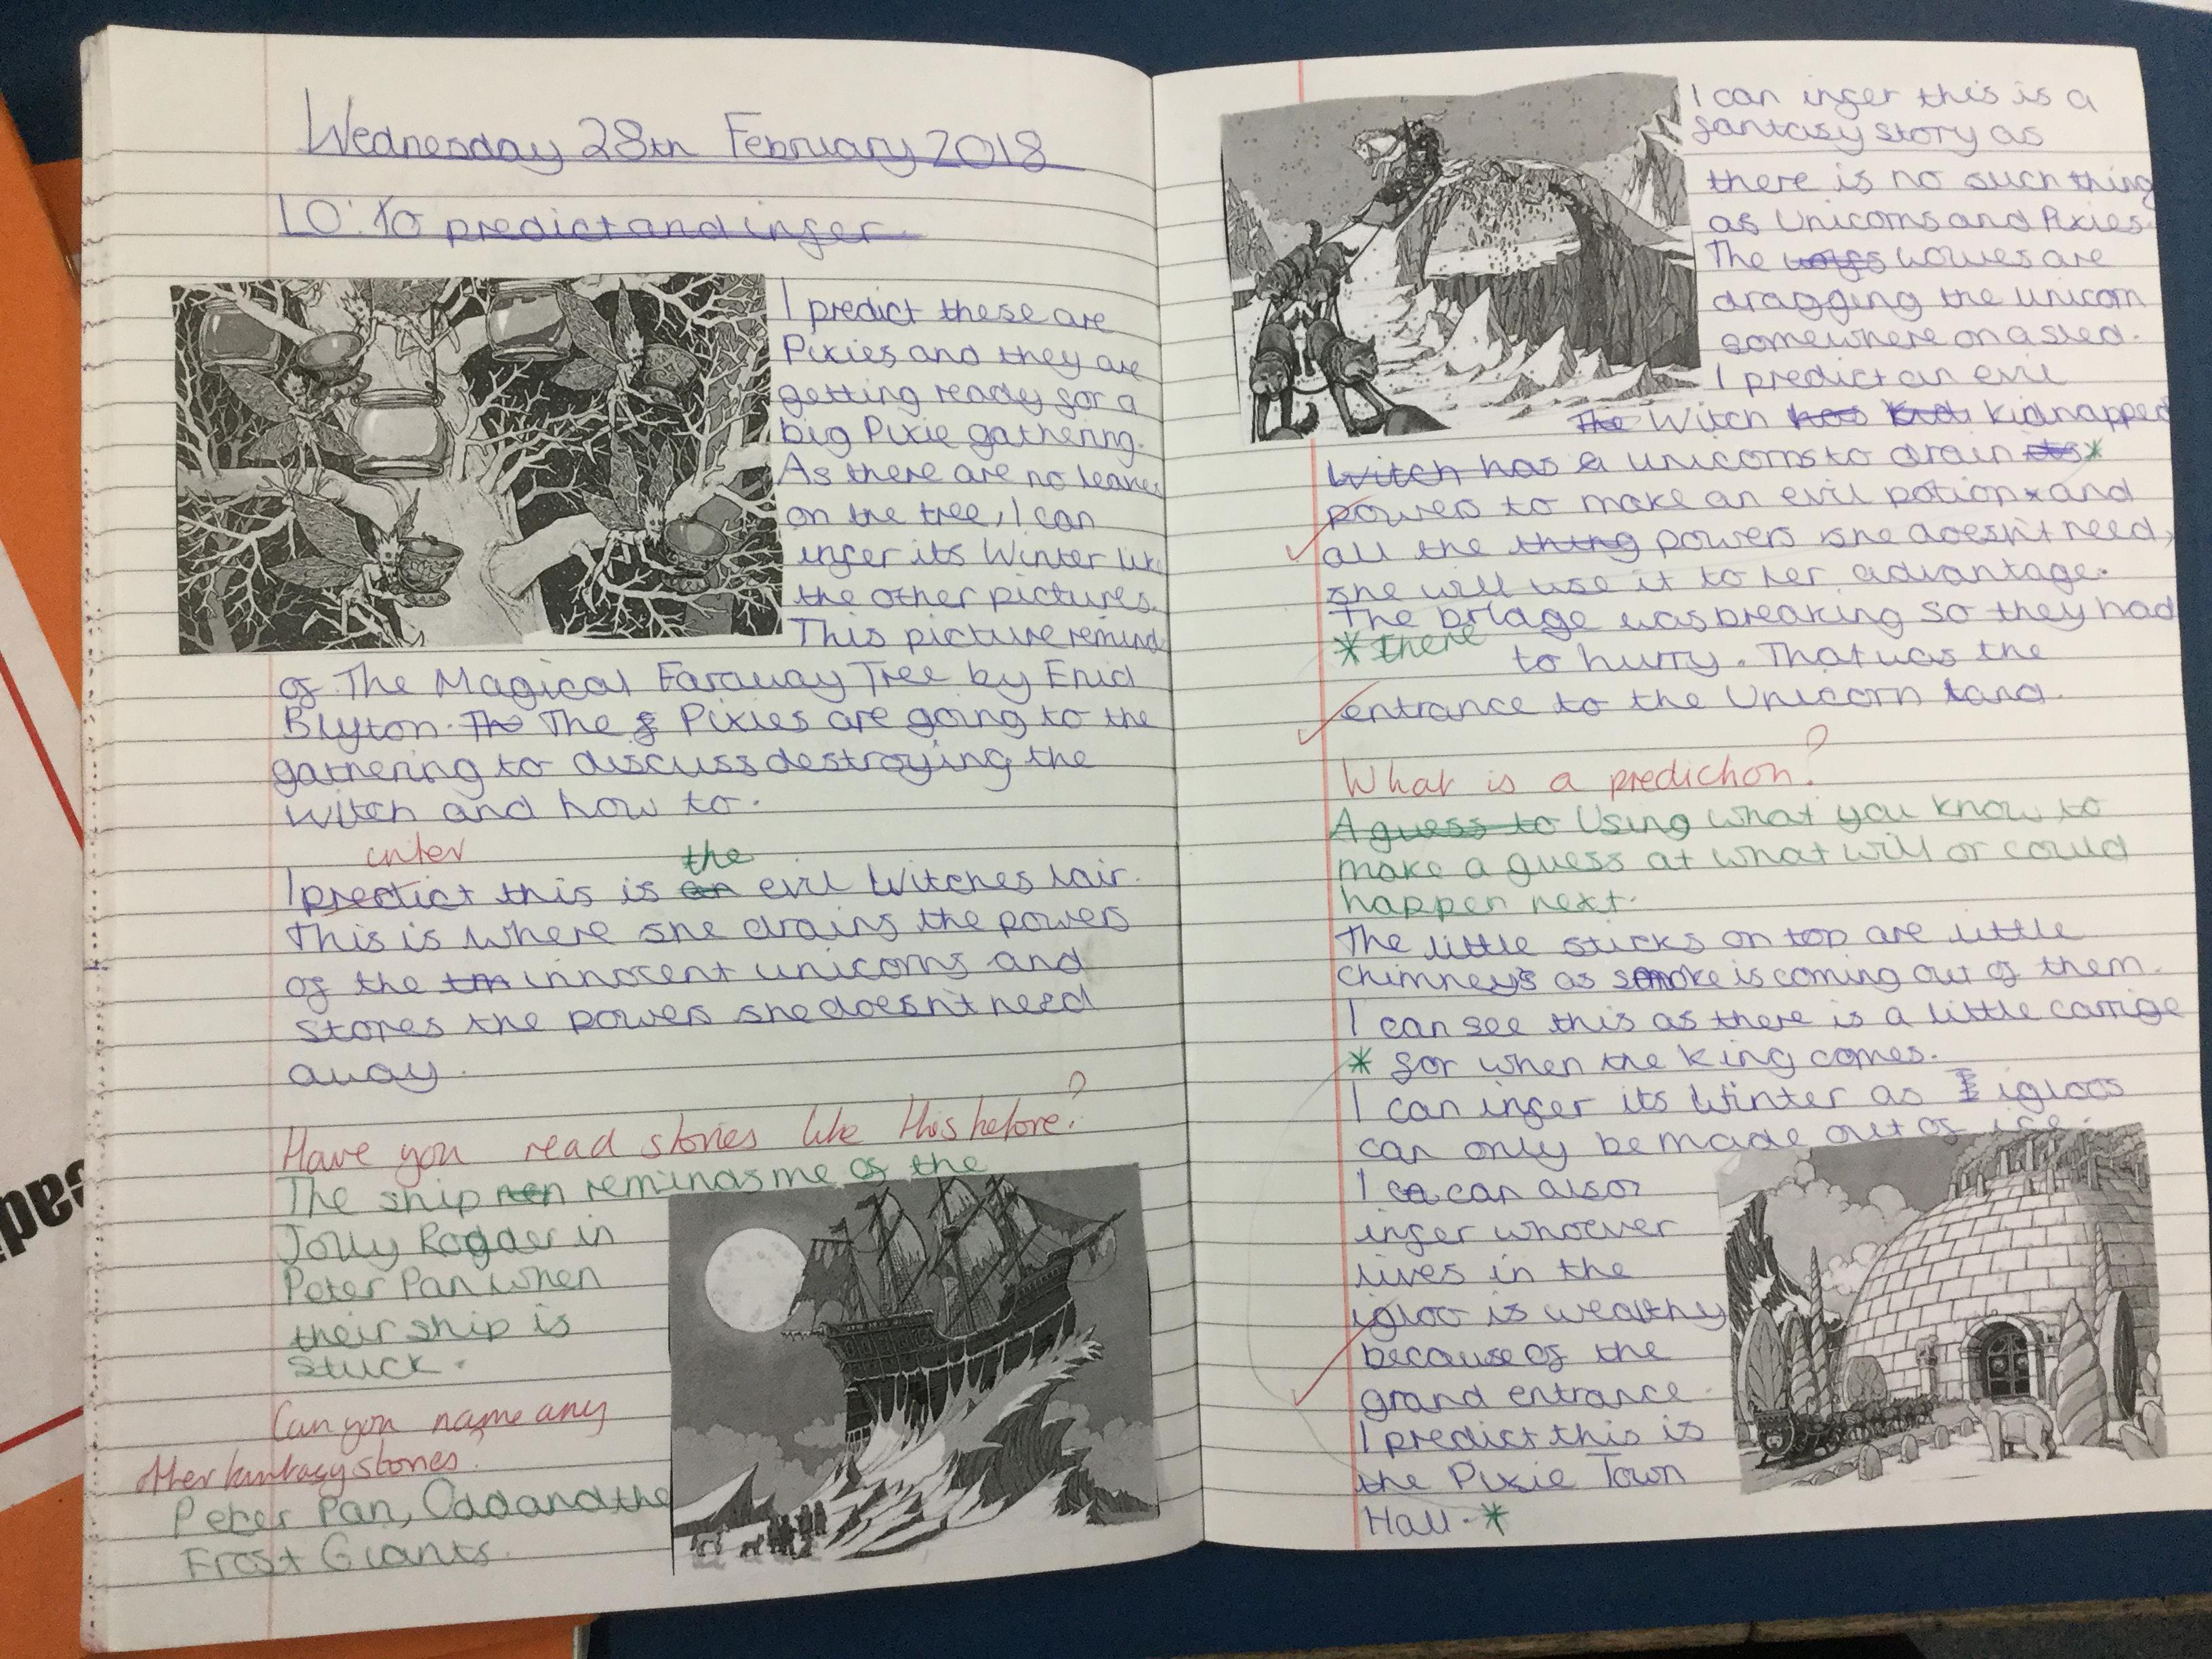 Wednesday 28th February 2018
LO: To predict and infer
I predict these are
Pixies and they are
getting ready for a
big Pixie gathering.
As there are no leaves
on the tree, I can
infer its Winter like
the other pictures.
This picture remind
of The Magical Faraway Tree by Enid
Blyton. The The f Pixies are going to the
gathering to discuss destroying the
witch and how to.
infer the
I predict this is an evil Witches lair.
This is where she drains the powers
of the innocent unicorns and
stores the powers she doesn't need
away.
Have you read stories like this before?
The ship reminds me of the
Jolly Rogder in
Peter Pan when
their ship is
stuck.
Can you name any
other fantasy stories?
Peter Pan, Odd and the
Frost Giants.
I can infer this is a
fantasy story as
there is no such thing
as Unicorns and Pixies.
The wolfs wolves are
dragging the unicorn
somewhere on a sled.
I predict an evil
The Witch has kidnapped
Witch has a unicorns to drain its *
powers to make an evil potion and
all the thing powers she doesn't need,
she will use it to her advantage.
The bridge was breaking so they had
* there
to hurry. That was the
entrance to the Unicorn land.
What is a prediction?
A guess to Using what you know to
make a guess at what will or could
happen next.
The little sticks on top are little
chimneys as smoke is coming out of them.
I can see this as there is a little carrige
* for when the king comes.
I can infer its Winter as I igloos
can only be made out of ice.
I ca can also
infer whoever
lives in the
igloo is wealthy
because of the
grand entrance.
I predict this is
the Pixie Town
Hall. *